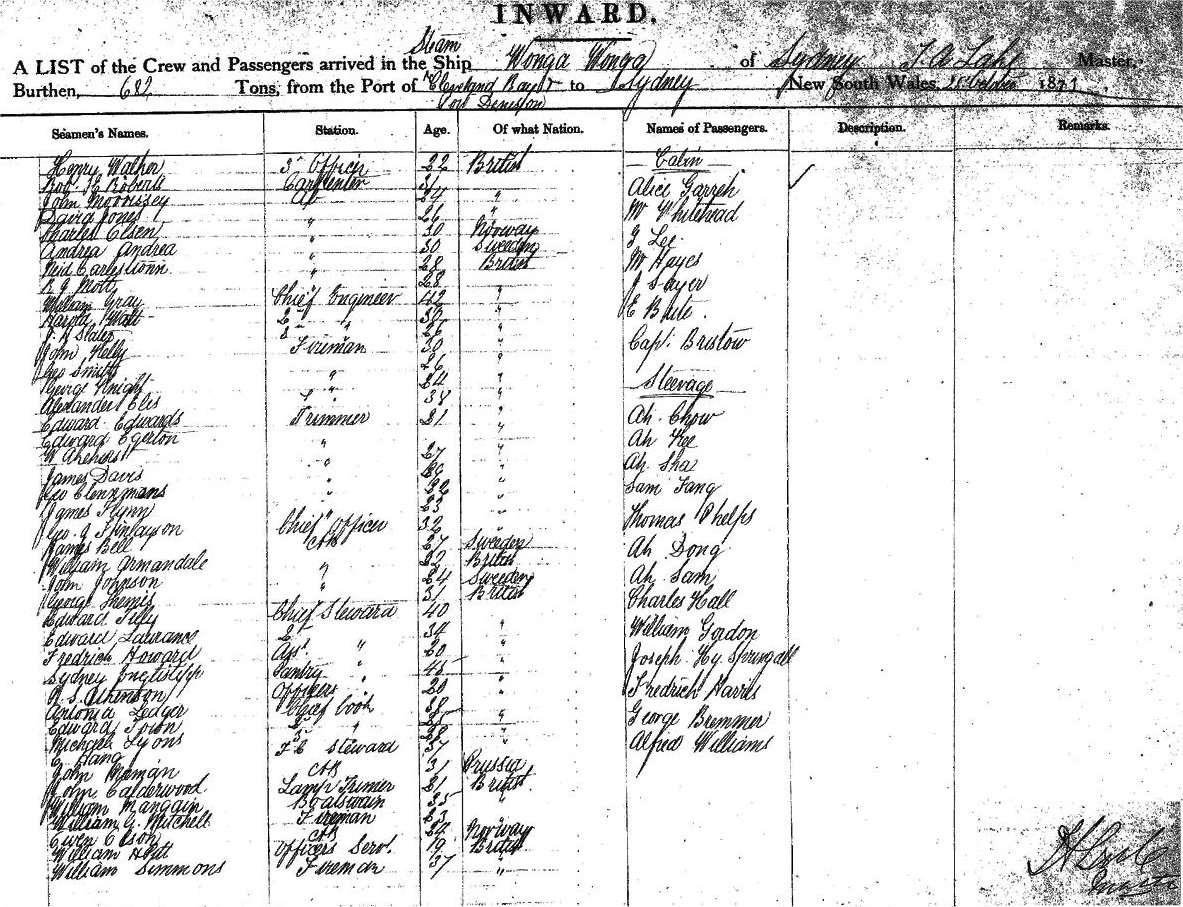 INWARD.
Steam
A LIST of the Crew and Passengers arrived in the Ship Wonga Wonga of Sydney Master,
Burthen, 682 Tons, from the Port of Cleveland Bay & to Sydney New South Wales, 1871
Port Denison
Seamen's Names. Station. Age. Of what Nation. Names of Passengers. Description. Remarks.
Henry Walker 3rd Officer 22 British Cabin
Robt H Roberts Carpenter Alice Garreh
John Morrissey AB 24 " W Whitehead
David Jones " 26 "
Charles Olsen " 30 Norway G Lee
Andrea Andrea " 30 Sweeden
Neid Carlestioun " 28 British W Hayes
28 J Sayer
William Gray Chief Engineer 42 " E Bute
Harold Watt 2 " " "
J. H Slater 3 " 26 "
John Kelly Fireman 30 " Capt. Bristow
Geo Smith 26 "
George Knight " 24 " Steerage
Alexander " 38 "
Edward Edwards Trimmer 21 Ah. Chow
Edward Egerton " " Ah Kee
W " 27 " Ah Sha
James Davis " "
Geo Clenzmans " " Sam Fang
James Flynn " 23 "
Geo. J Finlayson Chief Officer 32 Thomas Phelps
James Bell AB 27 Sweeden
William Armandale 22 British Ah Dong
John Johnson " 24 Sweeden Ah Sam
George Themis " 31 British
Edward Tily Chief Steward 40 Charles Hall
Edward Laurance 2 34 " William Gordon
Fredrich Howard Asst. " 20 "
Sydney Pantry 45 " Joseph Hy. Springall
R. S. Atkinson Officers " 20 " Fredrich Harris
Antonia Ledger Chief Cook 38 "
Edward Town 2 " George Bremmer
Michael Lyons 3 " 38 " Alfred Williams
C Hang F C Steward 37
John Maman AB 31 Prussia
John Calderwood Lamp Trimer 21 British
William Mangain Boatswain 35
William G. Mitchell Fireman 23
Owen Olson AB 24 Norway
William Hott Officers Servt. 19 British
William Simmons Fireman 37 "